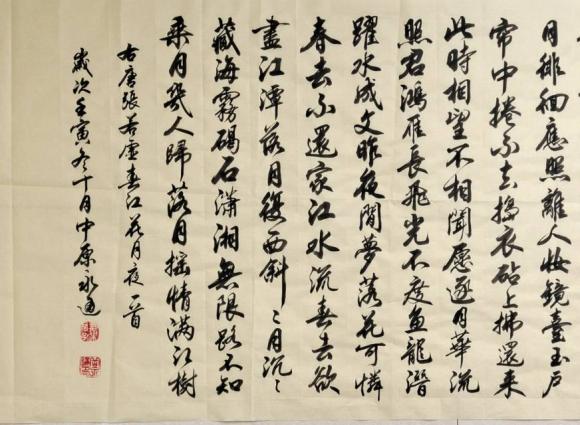 月徘徊應照離人妝鏡臺玉戶
帘中捲不去搗衣砧上拂還来
此時相望不相聞愿逐月華流
照君鴻雁長飛光不度魚龍潛
躍水成文昨夜閒夢落花可憐
春去不還家江水流春去欲
盡江潭落月復西斜〻月沉〻
藏海霧碣石瀟湘無限路不知
乘月幾人歸落月摇情滿江樹
右唐張若虛春江花月夜一首
歲次壬寅冬十月中原永通